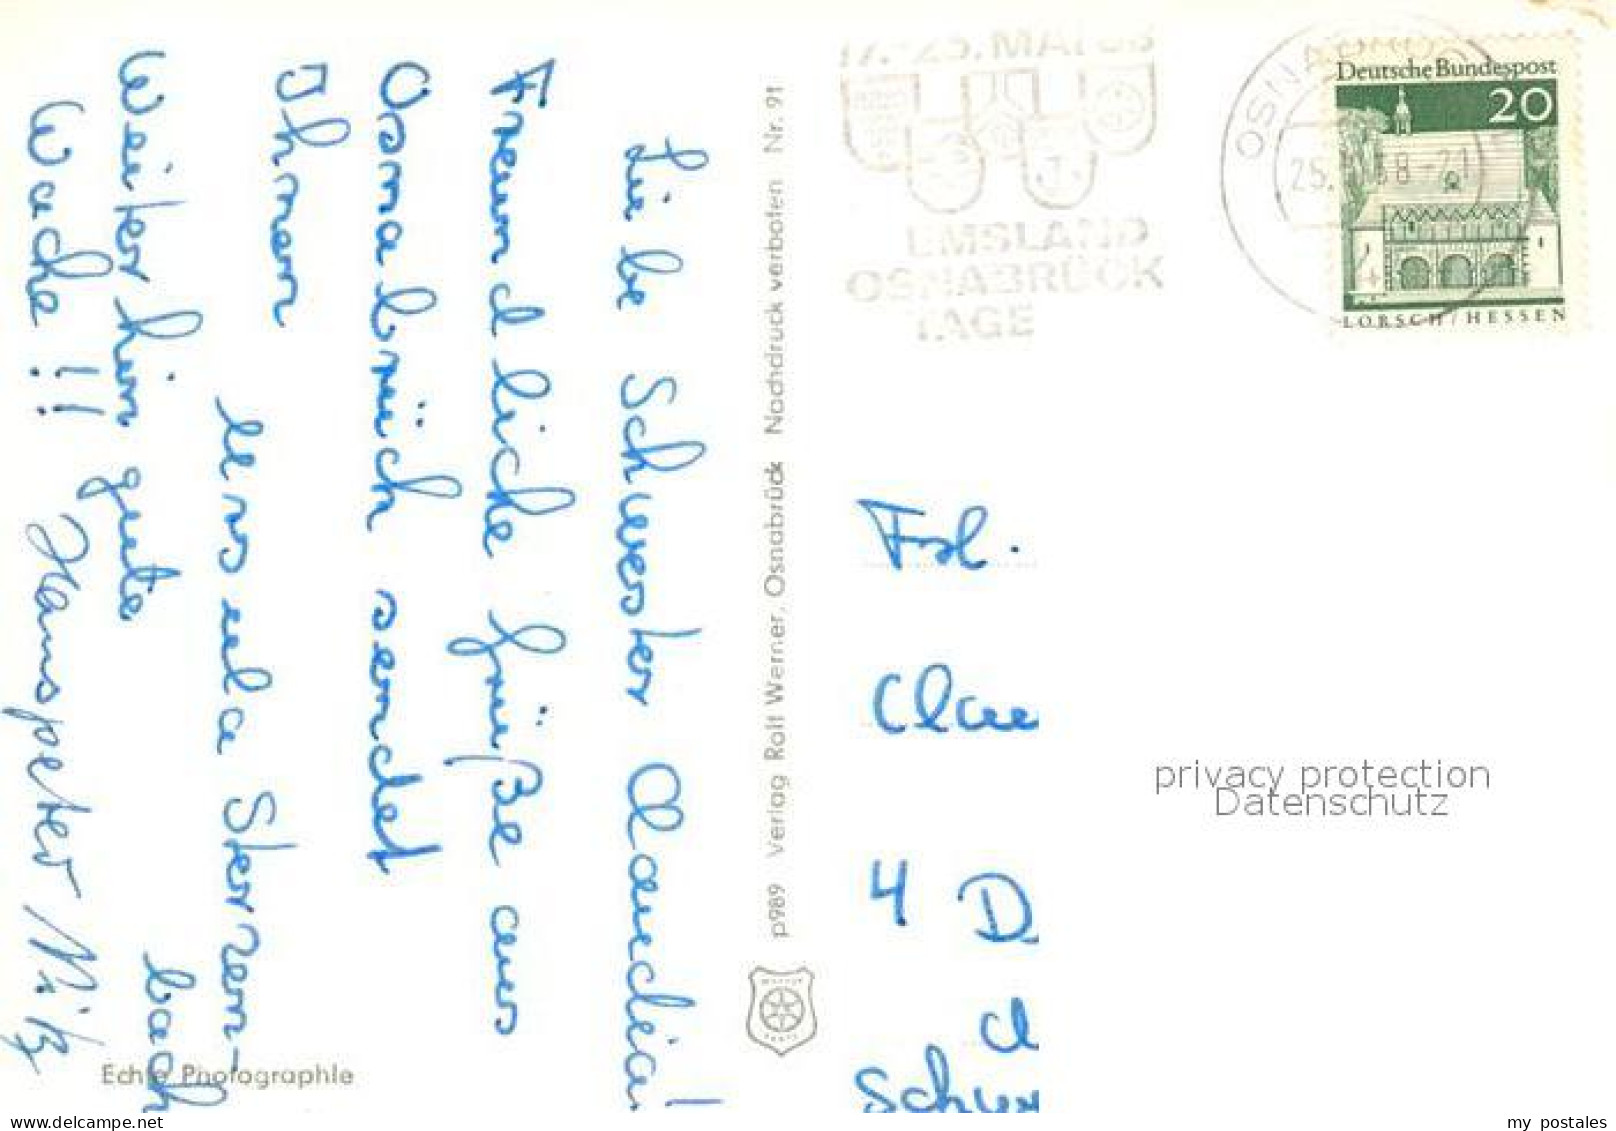 Liebe Schwester Claudia!
Freundliche Grüße aus
Osnabrück sendet
Ihnen
Ursula Sterzen-
bach
Weiterhin gute
Wache!! Hanspeter
Echte Photographie
p989 Verlag Rolf Werner, Osnabrück Nachdruck verboten Nr. 91
17.-25. MAI 68
EMSLAND
OSNABRÜCK
TAGE
OSNABRÜ
25. 68-21
Deutsche Bundespost
20
LORSCH/HESSEN
Frl.
Clau
4 D
Schw
privacy protection
Datenschutz
delcampe.net
my_postales